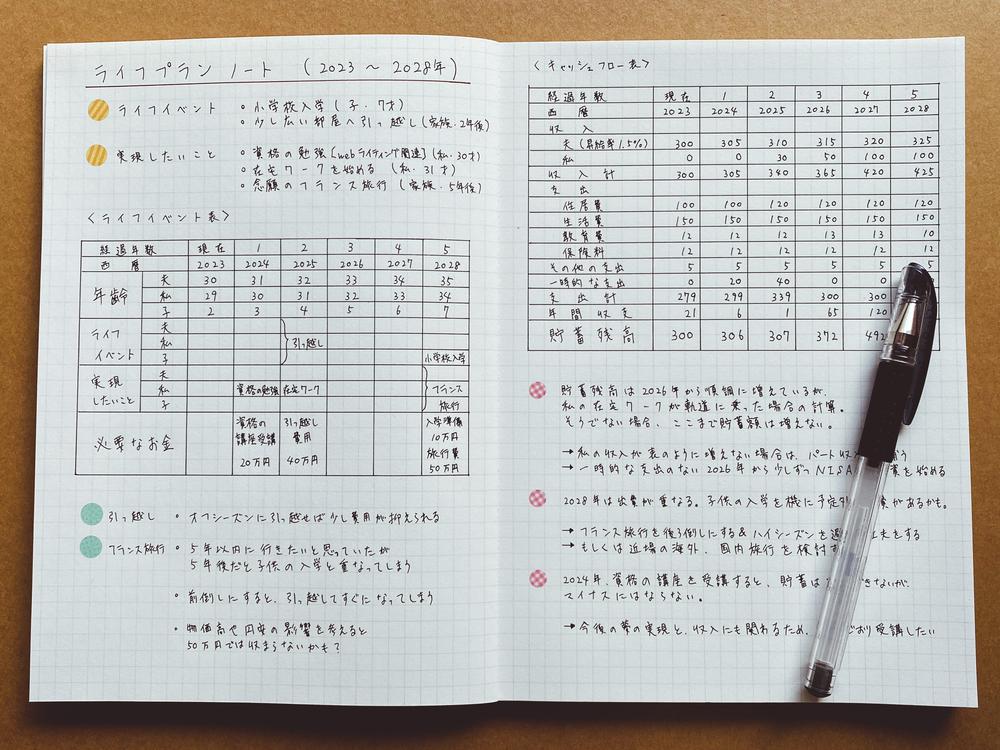 ライフプランノート (2023 ~ 2028年)
ライフイベント
• 小学校入学 (子・7才)
• 少し広い部屋へ引っ越し (家族・2年後)
実現したいこと
• 資格の勉強 [webライティング関連] (私・30才)
• 在宅ワークを始める (私・31才)
• 念願のフランス旅行 (家族・5年後)
〈ライフイベント表〉
経過年数 現在 1 2 3 4 5
西暦 2023 2024 2025 2026 2027 2028
年齢 夫 30 31 32 33 34 35
私 29 30 31 32 33 34
子 2 3 4 5 6 7
ライフイベント 夫
私 引っ越し
子 小学校入学
実現したいこと 夫
私 資格の勉強 在宅ワーク フランス
子 旅行
必要なお金
資格の講座受講 20万円
引っ越し費用 40万円
入学準備 10万円
旅行費 50万円
引っ越し • オフシーズンに引っ越せば少し費用が抑えられる
フランス旅行 • 5年以内に行きたいと思っていたが
5年後だと子供の入学と重なってしまう
• 前倒しにすると、引っ越してすぐになってしまう
• 物価高や円安の影響を考えると
50万円では収まらないかも?
〈キャッシュフロー表〉
経過年数 現在 1 2 3 4 5
西暦 2023 2024 2025 2026 2027 2028
収入
夫 (昇給率1.5%) 300 305 310 315 320 325
私 0 0 30 50 100 100
収入計 300 305 340 365 420 425
支出
住居費 100 100 120 120 120 120
生活費 150 150 150 150 150 150
教育費 12 12 12 13 13 10
保険料 12 12 12 12 12 12
その他の支出 5 5 5 5 5 5
一時的な支出 0 20 40 0 0
支出計 279 299 339 300 300
年間収支 21 6 1 65 120
貯蓄残高 300 306 307 372 492
貯蓄残高は2026年から順調に増えているが、
私の在宅ワークが軌道に乗った場合の計算。
そうでない場合、ここまで貯蓄額は増えない。
→ 私の収入が表のように増えない場合は、パート収
→ 一時的な支出のない2026年から少しずつNISA 資を始める
2028年は出費が重なる。子供の入学を機に予定外 費があるかも。
→ フランス旅行を後ろ倒しにする&ハイシーズンを 工夫をする
→ もしくは近場の海外、国内旅行を検討す
2024年、資格の講座を受講すると、貯蓄は きないが、
マイナスにはならない。
→ 今後の夢の実現と、収入にも関わるため、 どおり受講したい